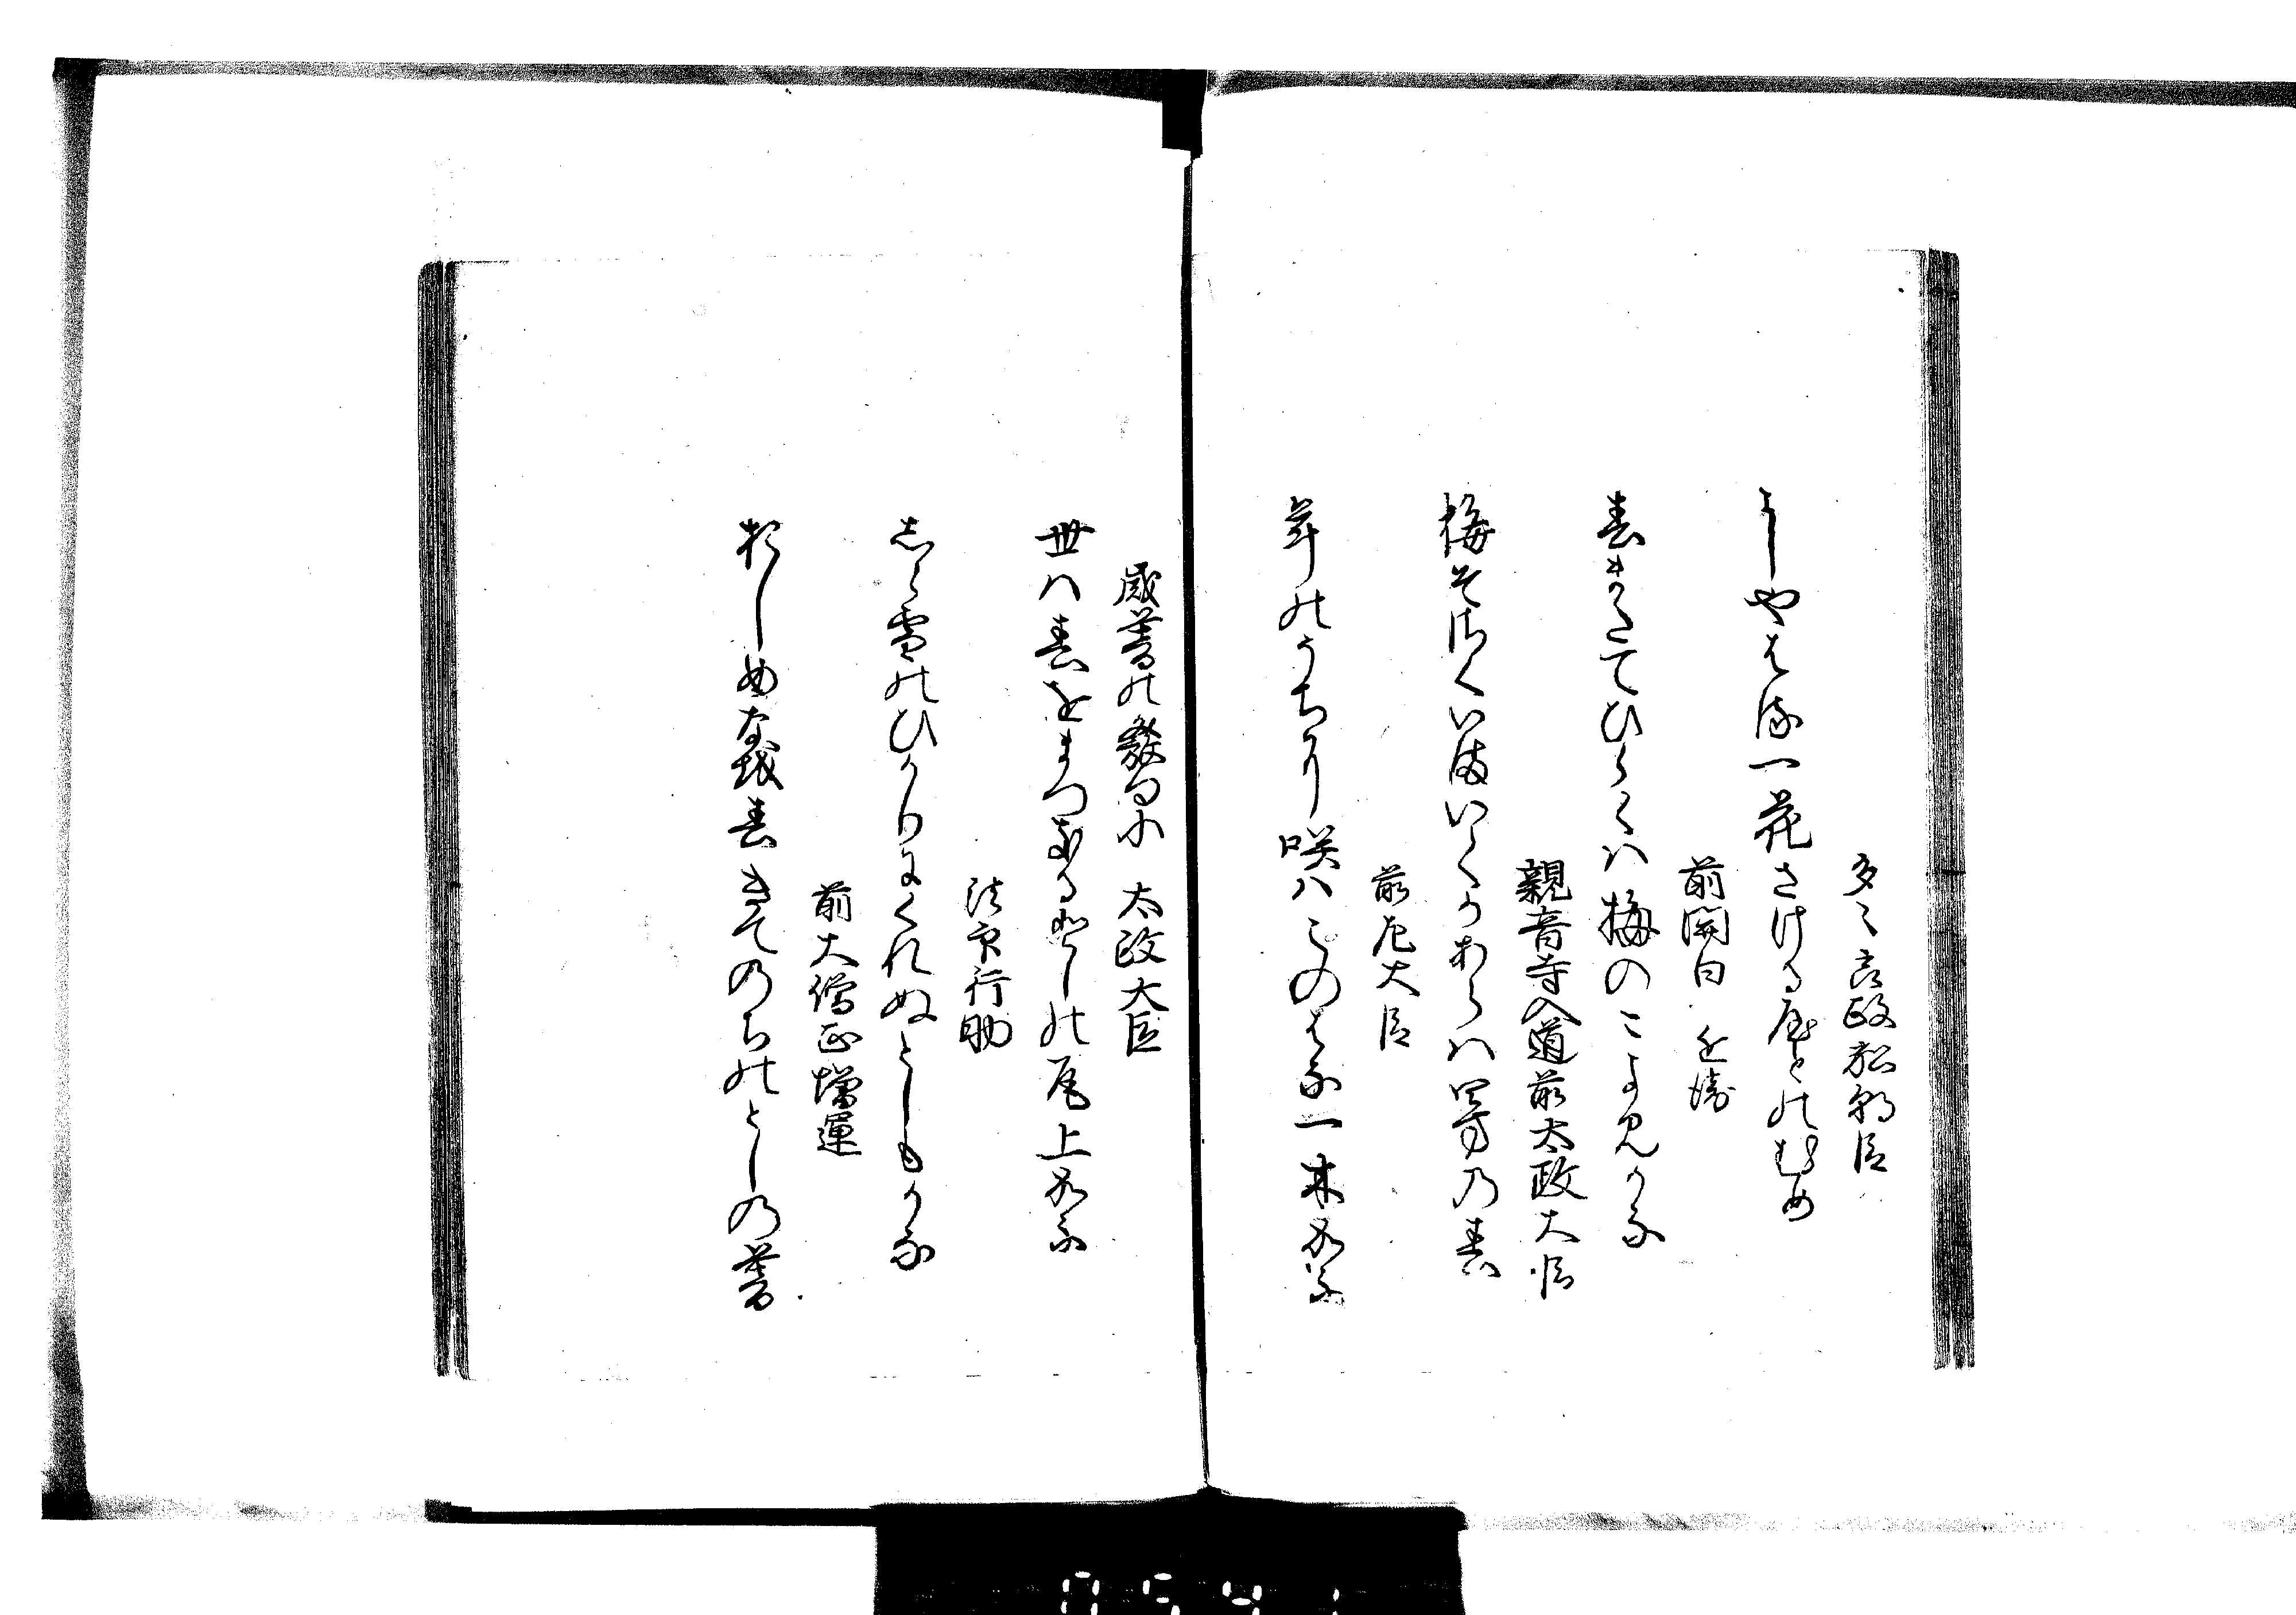 多々良政弘朝臣
よしやはる一花さける宿のむめ
前関白 近衛
春またてひらくは梅のこよみかな
観音寺入道前太政大臣
梅そさくいまいくかあらは四方の春
前左大臣
年のうちに咲はこのはな一木かな
歳暮の発句に 太政大臣
世は春をまつなるとしの尾上かな
法印行助
しら雪のひかりにくれぬとしもかな
前大僧正増運
おしめなを春きてのちのとしの暮